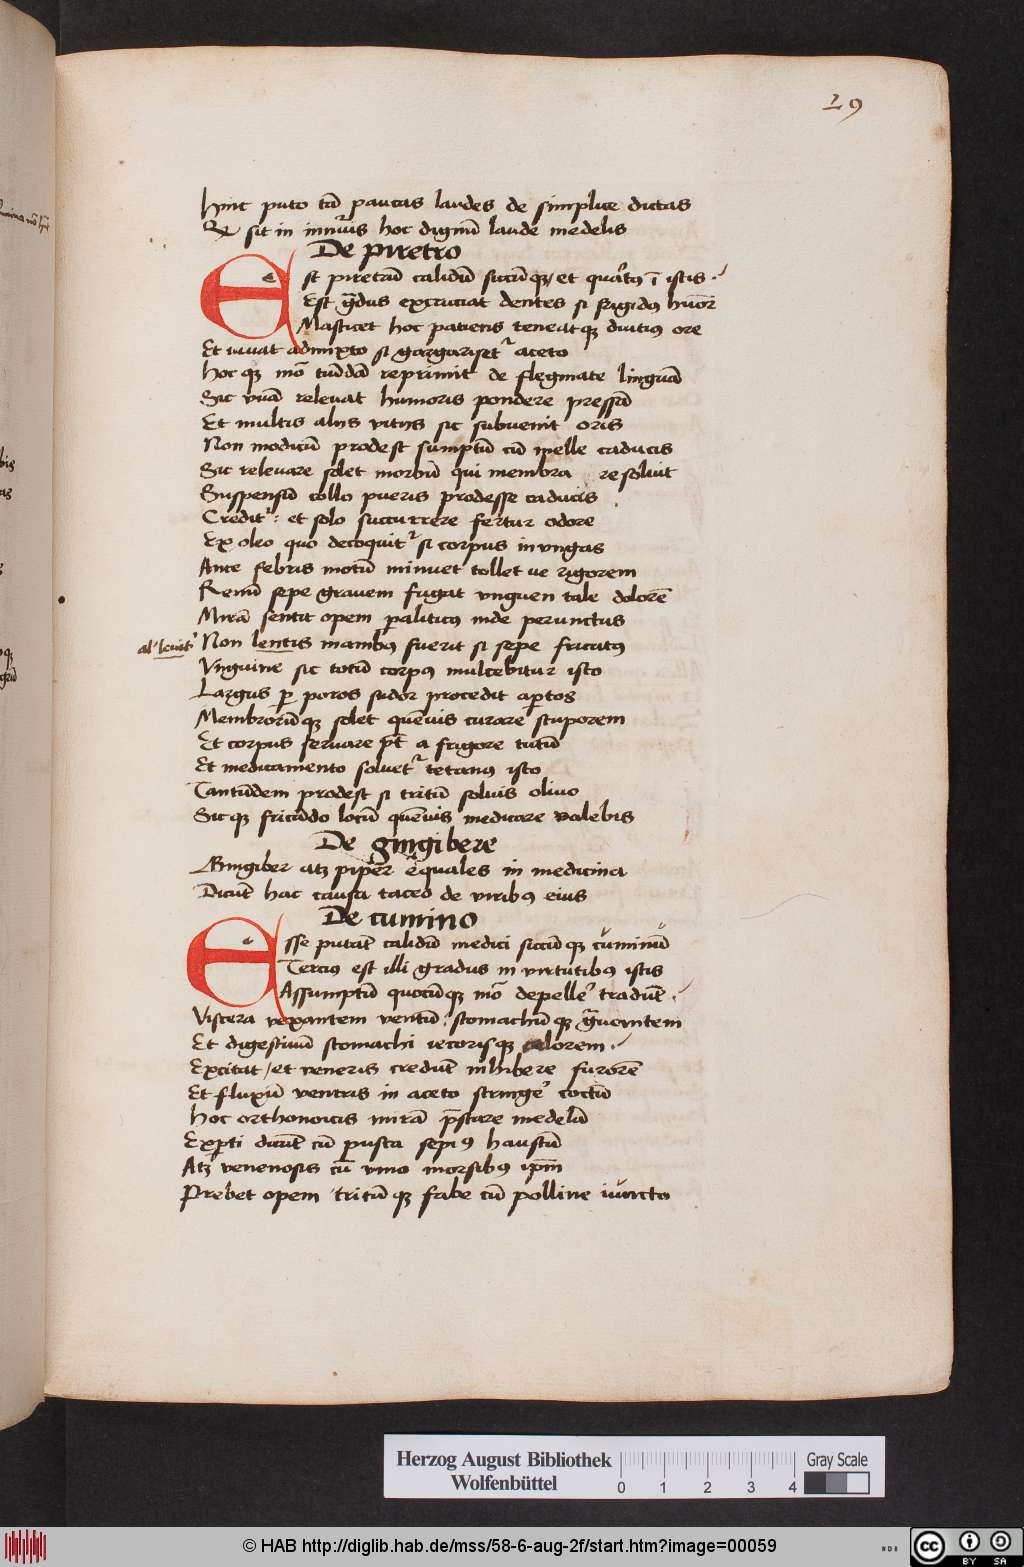 29
hinc puto tā paucas laudes de simplice dictas
Qͣ sit in innūis hoc dignū laude medelis
De piretro
Est piretrū calidū siccūqꝫ / et quātꝰ ī istis
Est gͣdus excruciat dentes si frigidꝰ humor
Masticet hoc patiens teneatqꝫ diutiꝰ ore
Et iuuat admixto si gargarisetᷣ aceto
Hocqꝫ mō tūdā reprimit de flegmate linguā
Sic vuā releuat humoris pondere pressā
Et multis alijs vitijs sic subuenit oris
Non modicū prodest sumptū cū melle caducis
Sic releuare solet morbū qui membra resoluit
Suspensū collo pueris prodesse caducis
Creditᷣ: et solo succurrere fertur odore
Ex oleo quo decoquitᷣ si corpus invngas
Ante febris motū minuet tollet ue rigorem
Renū sepe grauem fugat vnguen tale dolorē
Mirā sentit opem paliticus inde perunctus
al' leuitᷣ
Non lentis manibꝰ fuerit si sepe fricatꝰ
Vnguine sic totū corpꝰ mulcebitur isto
Largus ꝑ poros sudor procedit aꝑtos
Membrorūqꝫ solet quēuis curare stuporem
Et corpus seruare pt̄ a frigore tutū
Et medicamento soluetᷣ tetanꝰ isto
Tantūdem prodest si tritū soluis oliuo
Sicqꝫ fricādo locū quēuis medicare valebis
De gingibere
Gingiber atqꝫ piper equales in medicina
Dicūt hac causa taceo de viribꝰ eius
De cumino
Esse putāt calidū medici siccūqꝫ cuminū
Terciꝰ est illi gradus in virtutibꝰ istis
Assumptū quocūqꝫ mō depelle᾽ tradūt
Viscera vexantem ventū: stomachūqꝫ gͣuentem
Et digestiuū stomachi iecorisqꝫ calorem
Excitat / et veneris credūt inhibere furorē
Et fluxū ventris in aceto stringe᾽ coctū
Hoc orthonoicis mirā p̄stare medelā
Exꝑti dicūt cū pusca sepiꝰ haustū
Atqꝫ venenosis cū vino morsibꝰ ipm̄
Prebet opem tritūqꝫ fabe cū polline iuncto
Herzog August Bibliothek
Wolfenbüttel
0 1 2 3 4
Gray Scale
© HAB http://diglib.hab.de/mss/58-6-aug-2f/start.htm?image=00059
cc BY SA